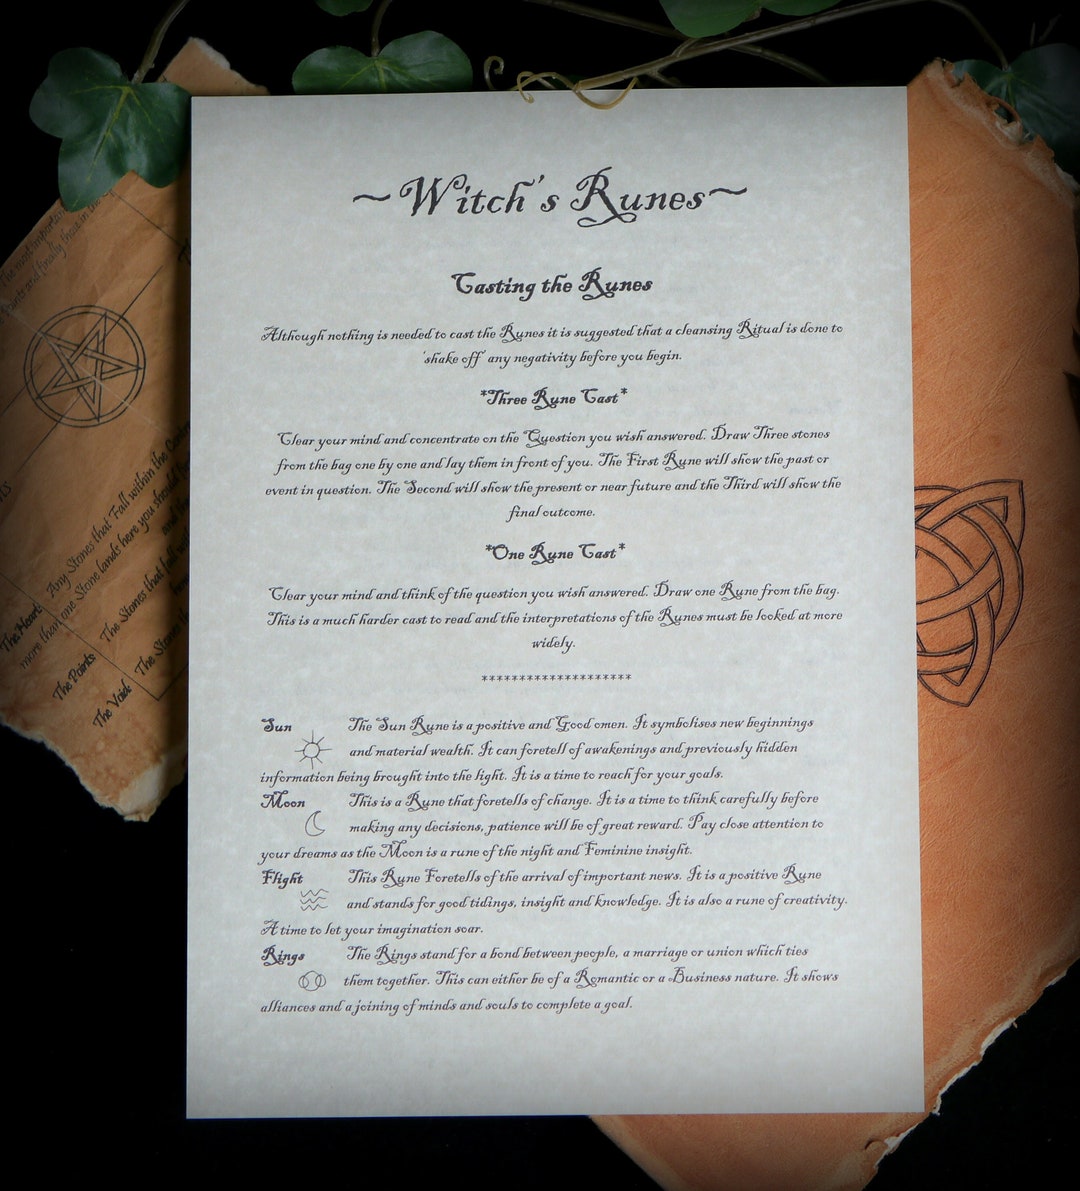 ~Witch's Runes~
Casting the Runes
Although nothing is needed to cast the Runes it is suggested that a cleansing Ritual is done to
'shake off' any negativity before you begin.
*Three Rune Cast*
Clear your mind and concentrate on the Question you wish answered. Draw Three stones
from the bag one by one and lay them in front of you. The First Rune will show the past or
event in question. The Second will show the present or near future and the Third will show the
final outcome.
*One Rune Cast*
Clear your mind and think of the question you wish answered. Draw one Rune from the bag.
This is a much harder cast to read and the interpretations of the Runes must be looked at more
widely.
********************
Sun The Sun Rune is a positive and Good omen. It symbolises new beginnings
and material wealth. It can foretell of awakenings and previously hidden
information being brought into the light. It is a time to reach for your goals.
Moon This is a Rune that foretells of change. It is a time to think carefully before
making any decisions, patience will be of great reward. Pay close attention to
your dreams as the Moon is a rune of the night and Feminine insight.
Flight This Rune Foretells of the arrival of important news. It is a positive Rune
and stands for good tidings, insight and knowledge. It is also a rune of creativity.
A time to let your imagination soar.
Rings The Rings stand for a bond between people, a marriage or union which ties
them together. This can either be of a Romantic or a Business nature. It shows
alliances and a joining of minds and souls to complete a goal.
The most important
Points and finally those in the
The Heart: Any Stones that Fall within the
more than one Stone lands here you should
and the
The Points: The Stones that fall
The Void: The Stones